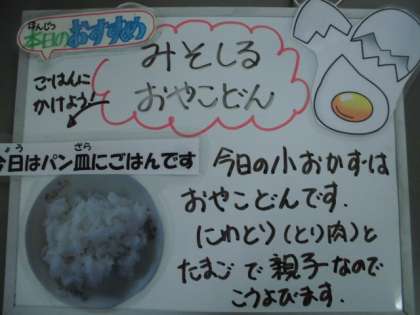 ほんじつ
本日のおすすめ
みそしる
おやこどん
ごはんに
かけよう!
きょう さら
今日はパン皿にごはんです
今日の小おかずは
おやこどんです.
にわとり(とり肉)と
たまごで親子なので
こうよびます.